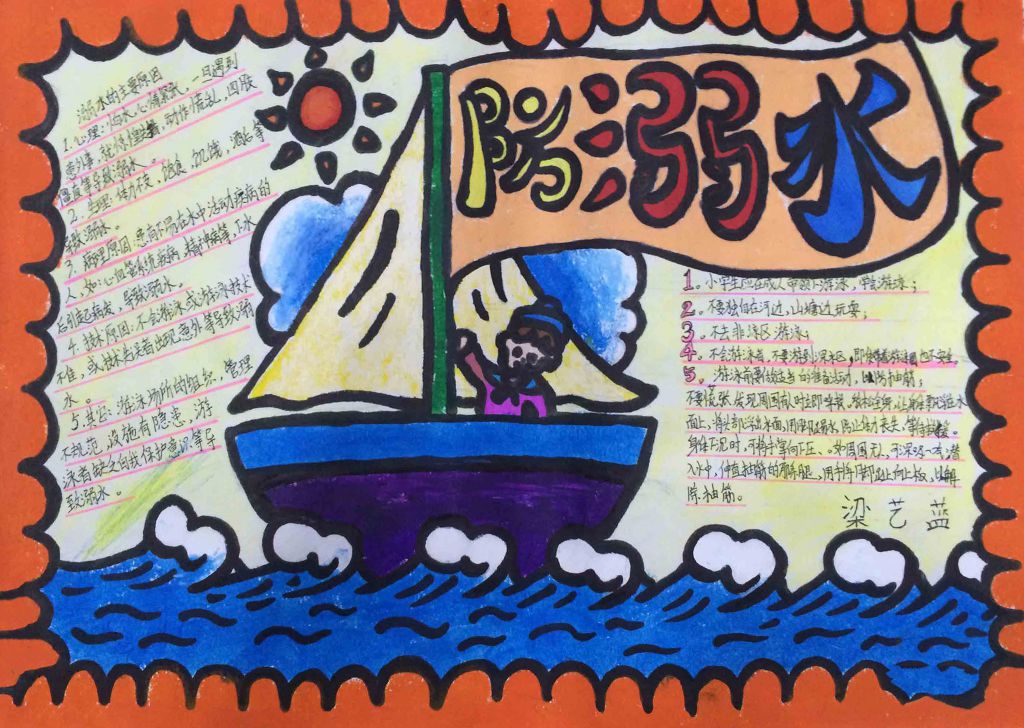 防溺水
溺水的主要原因
1.心理：怕水，心情紧张，一旦遇到
意外事，就惊慌，动作慌乱，四肢
僵直等导致溺水。
2.生理：体力不支，饱食，饥饿，酒后等
导致溺水。
3.病理原因：患有不易在水中活动疾病的
人，如：心血管系统疾病，精神病等，下水
后引起病发，导致溺水。
4.技术原因：不会游泳或游泳技术
不佳，或技术失误者出现意外等导致溺
水。
5.其它：游泳场所的组织、管理
不规范，设施有隐患，游
泳者缺乏自我保护意识等导
致溺水。
1.小学生应在成人带领下游泳，学会游泳；
2.不要独自在河边、山塘边玩耍；
3.不去非泳区游泳；
4.不会游泳者，不要游到深水区，即使带着游泳圈也不安全
5.游泳前要做适当的准备活动，以防抽筋；
不要慌张，发现周围有人时立即呼救。放松全身，让身体飘浮在水
面上，将头部浮出水面，用脚踢水，防止体力丧失，等待救援。
身体下沉时，可将手掌向下压。如周围无人，可深吸一气，潜
入水中，伸直抽筋的那条腿，用手将脚趾向上扳，以解
除抽筋。
梁艺蓝